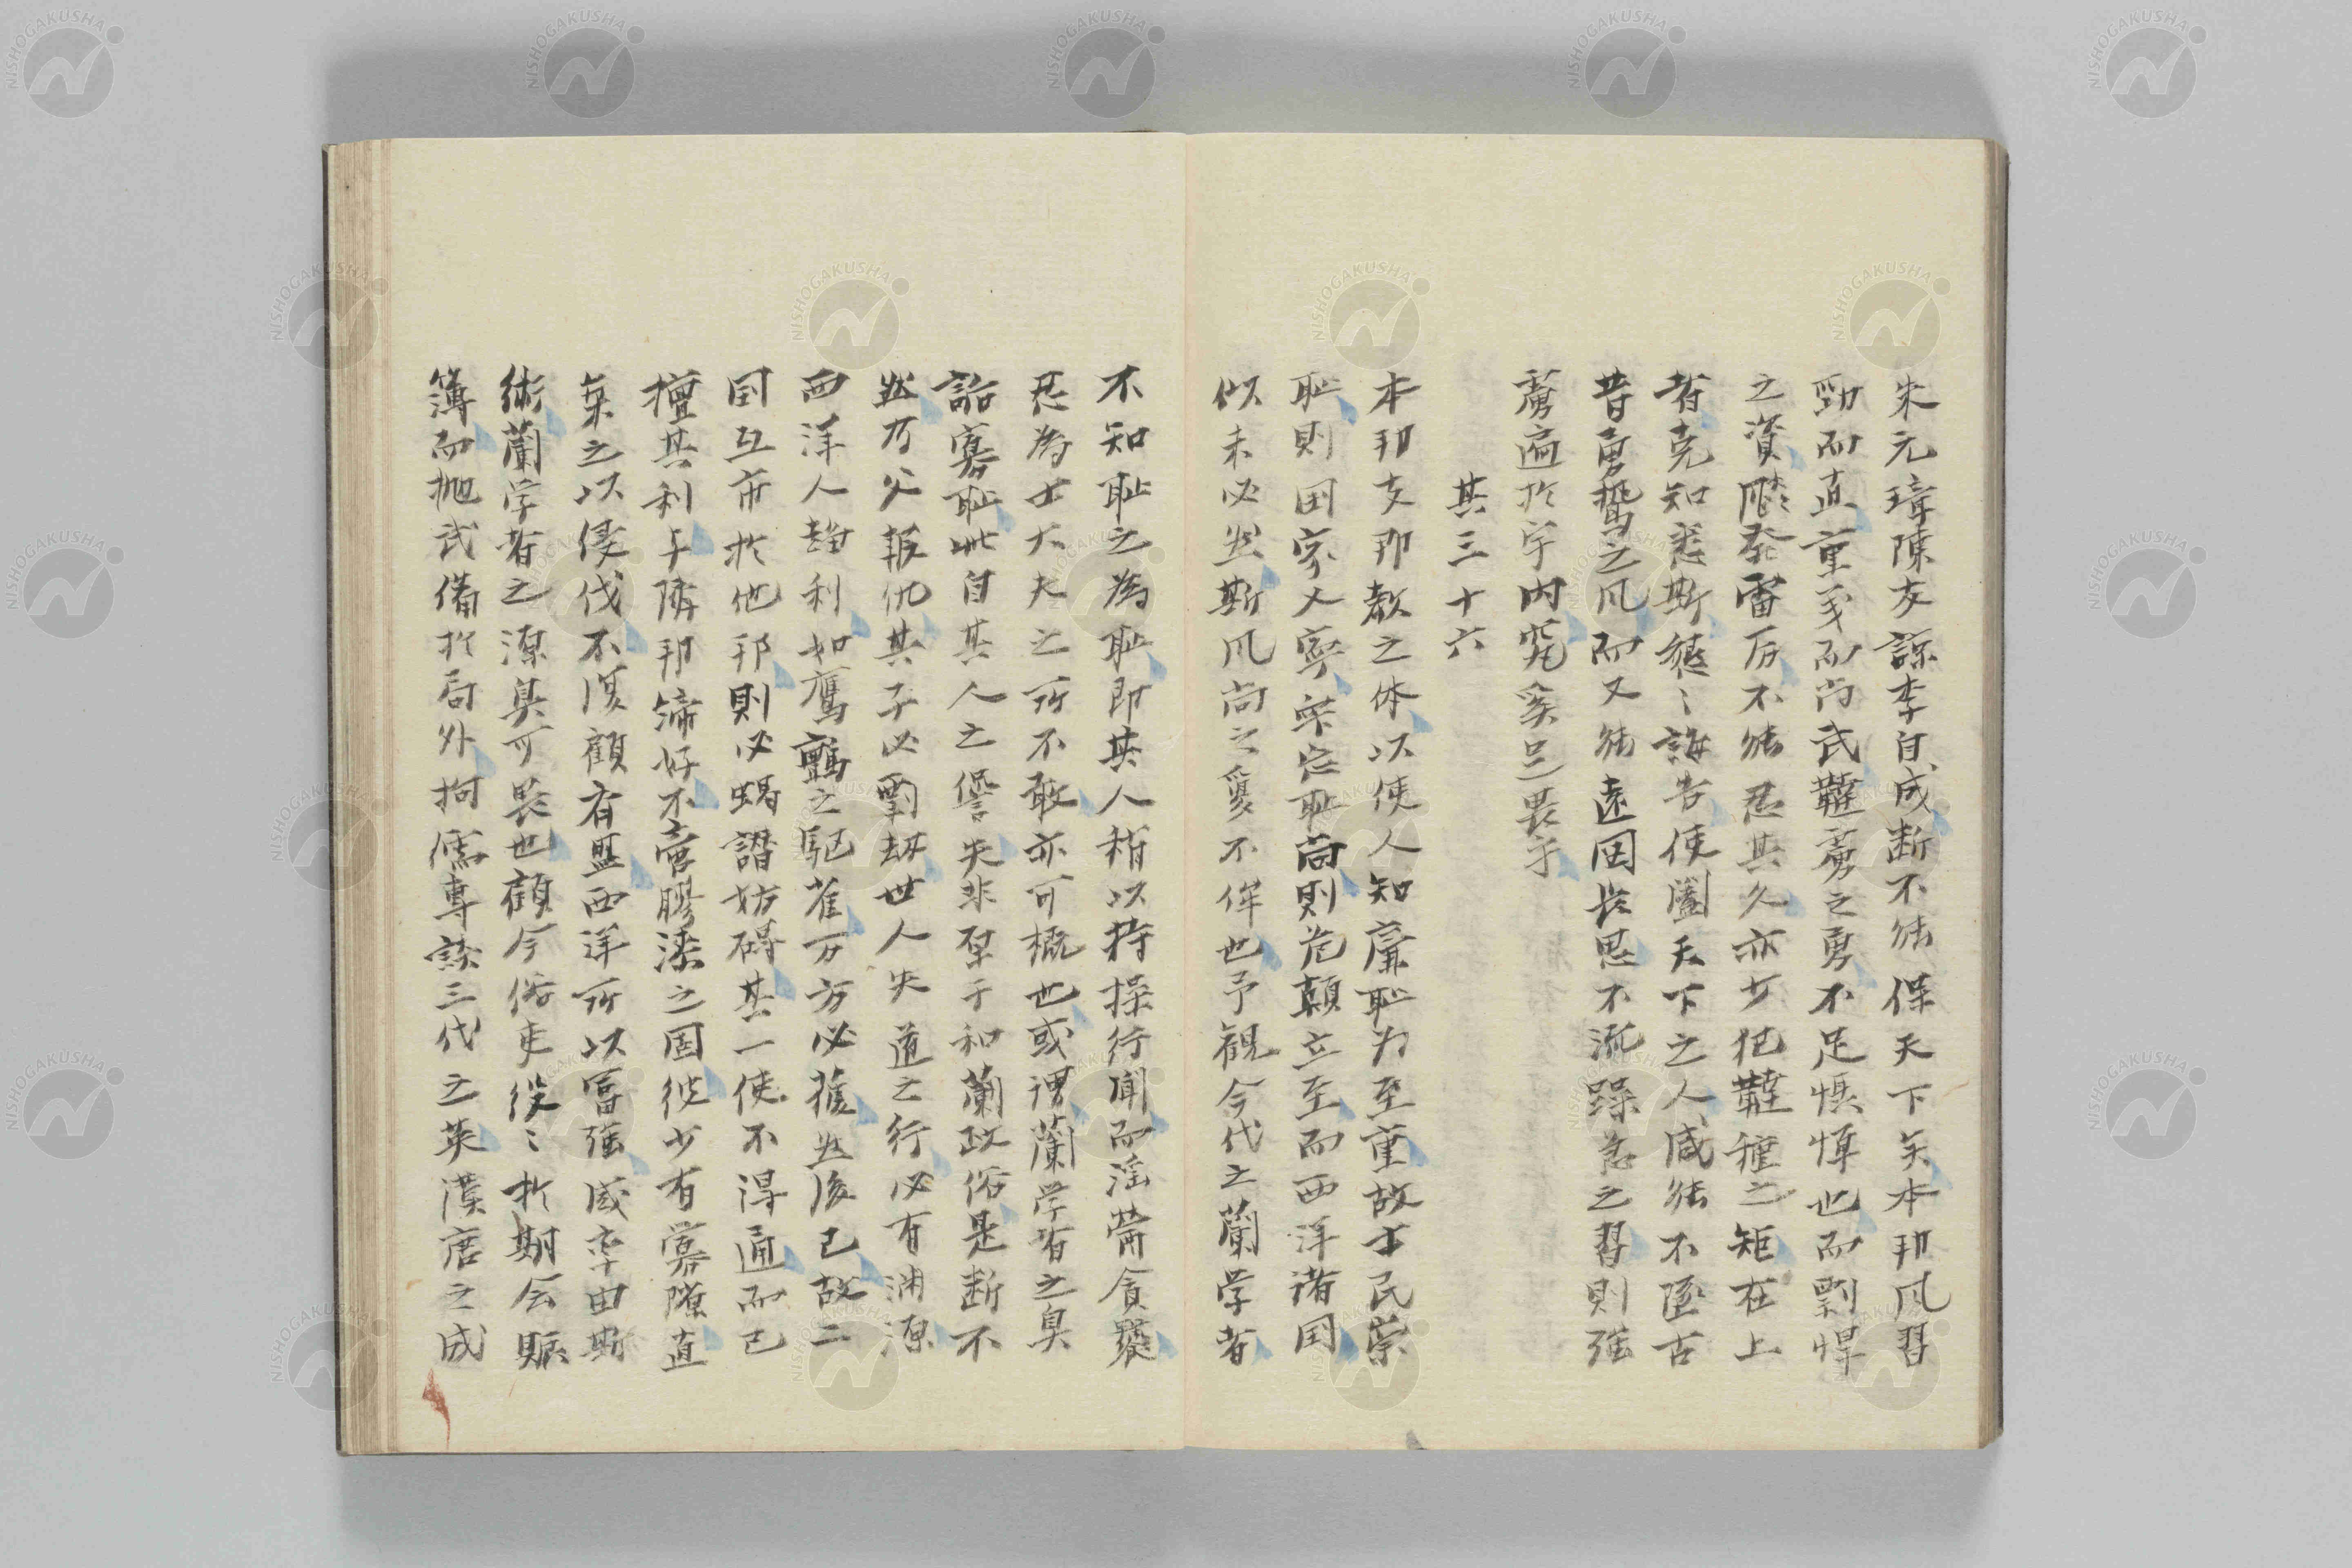 朱元璋陳友諒李自成断不能保天下矣本邦風習
勁而直重義而尚武韃虜之勇不足懼憚也而剽悍
之資 発雷 不能忍其久亦少犯韃種之矩在上
者克知悉斯 懇〻誨告使闔天下之人咸能不墜古
昔勇鷙之風而又能遠図長思不流躁急之習則強
虜遍於宇内究奚足畏乎
其三十六
本邦支那教之体以使人知廉恥为至重故士民崇
恥則国家又寧棄忘恥尚則危顛立至而西洋諸国
似未必然斯風尚之 不侔也予観今代之蘭学者
不知恥之為恥即其人稍以持操行聞而淫 貪饕
忍為士大夫之所不敢亦可概也或謂蘭学者之臭
詬寡恥此自其人之 失非 于和蘭政俗是断不
然乃父報仇其子必剽劫世人失道之行必有淵源
西洋人趨利如鷹鸇之駆雀万方必獲然後已故二
国互市於他邦則必 譖妨碍其一使不得通而已
擅其利与隣邦締好不啻膠漆之固彼少有 隙直
棄之以侵伐不復顧有盟西洋所以富強咸率由斯
術蘭学者之源臭可畏也顧今俗吏役〻於期会賑
簿而抛武備於局外拘儒専談三代之英漢唐之成